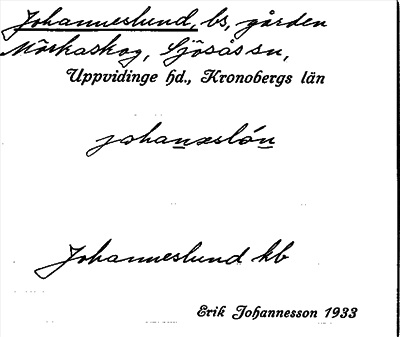 Johanneslund, bs, gården
Mörkaskog, Sjösås sn,
Uppvidinge hd., Kronobergs län
johanəslón
Johanneslund kb
Erik Johannesson 1933